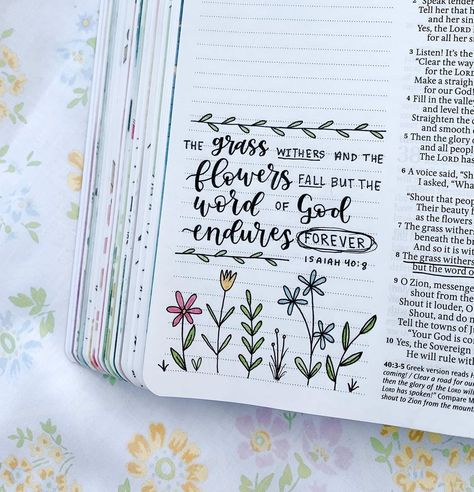 THE grass WITHERS AND THE
flowers FALL BUT THE
word OF God
endures FOREVER
ISAIAH 40:8
2 "Speak tender
Tell her that he
and her sin
Yes, the LORD
for all her si
3 Listen! It's the
"Clear the way
for the LORD
Make a straight
for our God!
4 Fill in the valley
and level the
Straighten the c
and smooth
5 Then the glory of
and all people
The LORD has
6 A voice said, "Sh
I asked, "What
"Shout that people
Their beauty
as the flowers
7 The grass withers
beneath the br
And so it is wit
8 The grass withers
but the word o
9 O Zion, messenger
shout from the
Shout it louder, O
Shout, and do n
Tell the towns of J
"Your God is com
10 Yes, the Sovereign
He will rule with
40:3-5 Greek version reads H
coming! / Clear a road for our
then the glory of the LORD will
LORD has spoken!" Compare M
shout to Zion from the moun